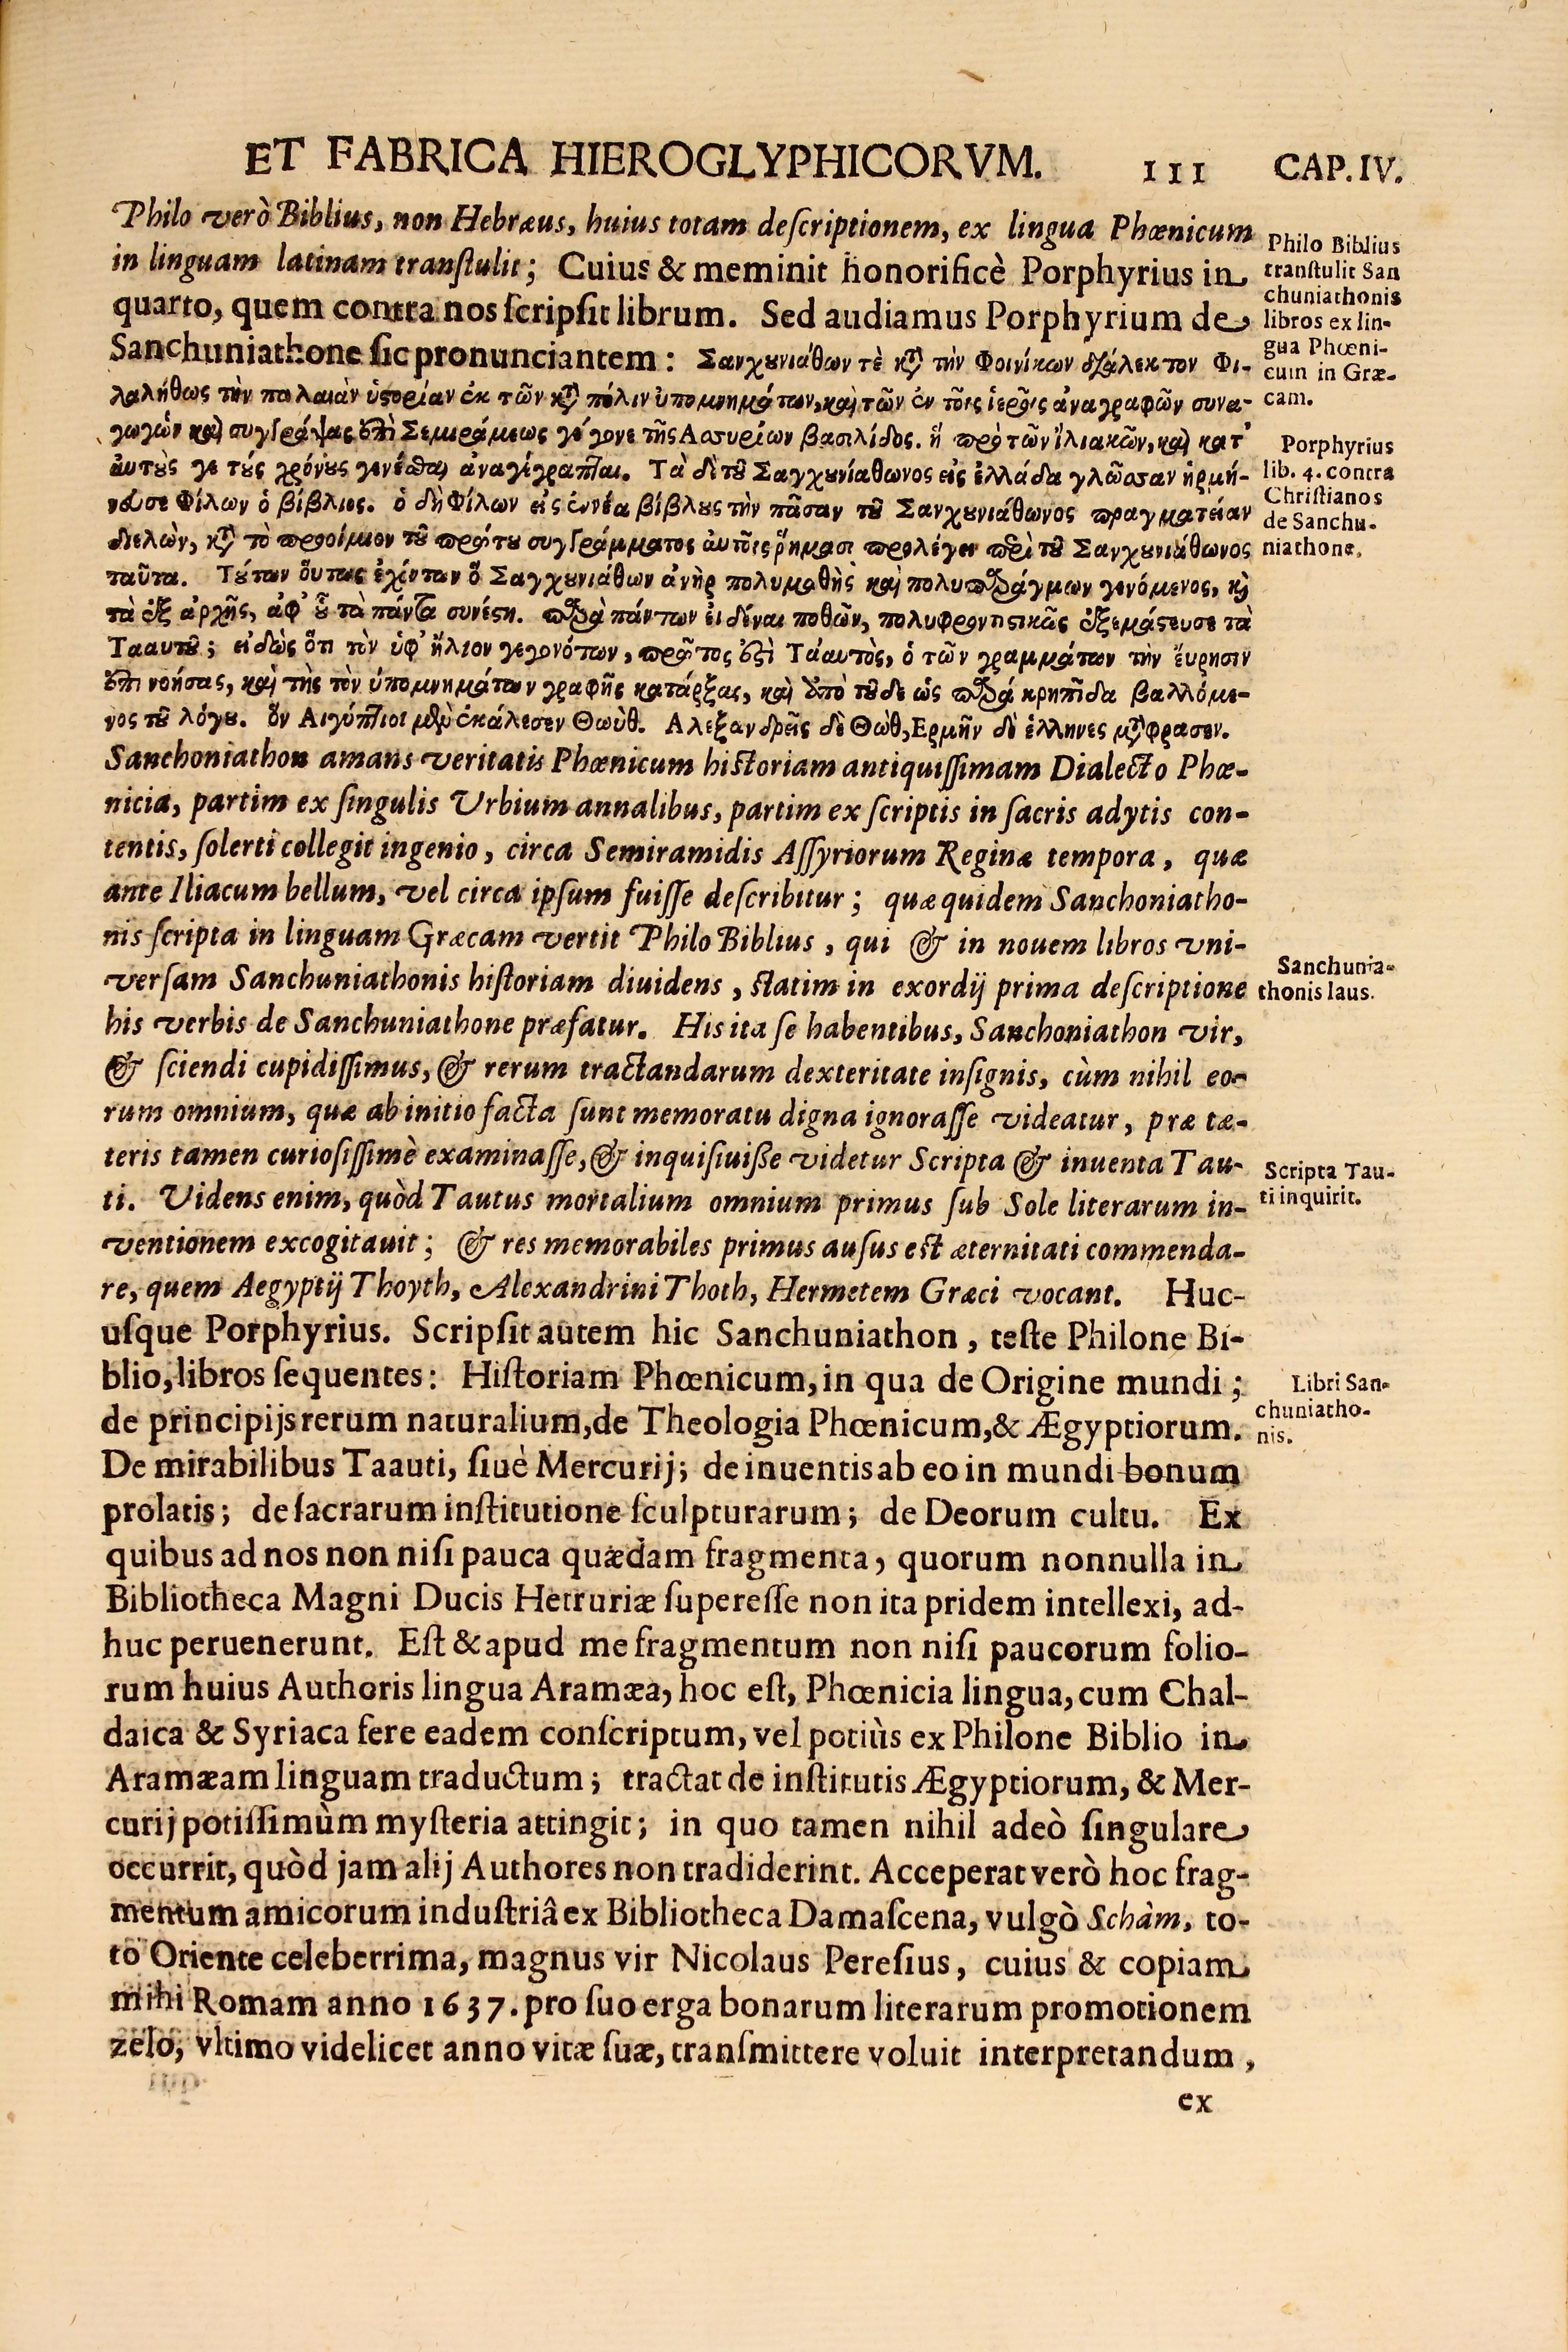 ET FABRICA HIEROGLYPHICORVM. 111 CAP. IV.
Philo verò Biblius, non Hebræus, huius totam deſcriptionem, ex lingua Phœnicum
in linguam latinam tranſtulit; Cuius & meminit honorificè Porphyrius in
quarto, quem contra nos ſcripſit librum. Sed audiamus Porphyrium de
Sanchuniathone ſic pronunciantem: Σανχȣνιάθων τὲ κτ̀ τὴν Φοινίκων διάλεκτον Φι-
λαλήθως τὴν παλαιὰν ἱϛορίαν ἐκ τῶν κτ̀ πόλιν ὑπομνημάτων, καὶ τῶν ἐν τοῖς ἱεροῖς ἀναγραφῶν συνα-
γωγὼν καὶ συγγράψας ἐπὶ Σεμιράμεως γέγονε τῆς Ασσυρίων βασιλίδος. ἥ πρὸ τῶν ἰλιακῶν, καὶ κατ'
ἀυτὺς γε τύς χρόνȣς γενέσθαι ἀναγέγραπται. Τὰ δὲ τȣ͂ Σαγχȣνίαθωνος εἰς ἑλλάδα γλῶσσαν ἡρμή-
νευσε Φίλων ὁ βίβλιος. ὁ δὴ Φίλων εἰς ἐννέα βίβλȣς τὴν πᾶσαν τȣ͂ Σανχȣνιάθωνος πραγματείαν
διελὼν, κτ̀ τὸ προοίμιον τȣ͂ πρώτȣ συγγράμματος ἀυτοῖς ῥήμασι προλέγει περὶ τȣ͂ Σανχȣνιάθωνος
ταῦτα. Τύτων ὅυτως ἐχόντων ὅ Σαγχȣνιάθων ἀνὴρ πολυμαθὴς καὶ πολυπράγμων γενόμενος, κὶ
τὰ ἐξ ἀρχῆς, ἀφ' ȣ̔͂ τὰ πάντα συνέϛη. παρὰ πάντων ἐιδέναι ποθῶν, πολυφροντιϛικῶς ἐξεμάϛευσε τὰ
Τααυτȣ͂; εἰδὼς ὅτι τὸν ὑφ' ἥλιον γεγονότων, πρῶτος ἐϛὶ Τάαυτὸς, ὁ τῶν γραμμάτων τὴν ἕυρησιν
ἐπινοήσας, καὶ τῆς τὸν ὑπομνημάτων γραφῆς κατάρξας, καὶ ἀπὸ τȣ͂δε ὡς παρά κρηπῖδα βαλλόμε-
νος τȣ͂ λόγȣ. ὅν Αιγύπτιοι μὲν ἐκάλεσεν Θωὺθ. Αλεξανδρεῖς δὲ Θὼθ, Ερμῆν δὲ ἑλληνες μτ̀φρασεν.
Sanchoniathon amans veritatis Phœnicum hiſtoriam antiquiſſimam Dialecto Phœ-
nicia, partim ex ſingulis Urbium annalibus, partim ex ſcriptis in ſacris adytis con-
tentis, ſolerti collegit ingenio, circa Semiramidis Aſſyriorum Reginæ tempora, quæ
ante Iliacum bellum, vel circa ipſum fuiſſe deſcribitur; quæ quidem Sanchoniatho-
nis ſcripta in linguam Græcam vertit Philo Biblius, qui & in nouem libros vni-
verſam Sanchuniathonis hiſtoriam diuidens, ſtatim in exordij prima deſcriptione
his verbis de Sanchuniathone præfatur. His ita ſe habentibus, Sanchoniathon vir,
& ſciendi cupidiſſimus, & rerum tractandarum dexteritate inſignis, cùm nihil eo-
rum omnium, quæ ab initio facta ſunt memoratu digna ignoraſſe videatur, præ tæ-
teris tamen curioſiſſimè examinaſſe, & inquiſiuiße videtur Scripta & inuenta Tau-
ti. Videns enim, quòd Tautus mortalium omnium primus ſub Sole literarum in-
ventionem excogitauit; & res memorabiles primus auſus eſt æternitati commenda-
re, quem Aegyptij Thoyth, Alexandrini Thoth, Hermetem Græci vocant. Huc-
uſque Porphyrius. Scripſit autem hic Sanchuniathon, teſte Philone Bi-
blio, libros ſequentes: Hiſtoriam Phœnicum, in qua de Origine mundi;
de principijs rerum naturalium, de Theologia Phœnicum, & Ægyptiorum.
De mirabilibus Taauti, ſiuè Mercurij; de inuentis ab eo in mundi bonum
prolatis; de ſacrarum inſtitutione ſculpturarum; de Deorum cultu. Ex
quibus ad nos non niſi pauca quædam fragmenta, quorum nonnulla in
Bibliotheca Magni Ducis Hetruriæ ſupereſſe non ita pridem intellexi, ad-
huc peruenerunt. Eſt & apud me fragmentum non niſi paucorum folio-
rum huius Authoris lingua Aramæa, hoc eſt, Phœnicia lingua, cum Chal-
daica & Syriaca fere eadem conſcriptum, vel potiùs ex Philone Biblio in
Aramæam linguam traductum; tractat de inſtitutis Ægyptiorum, & Mer-
curij potiſſimùm myſteria attingit; in quo tamen nihil adeò ſingulare
occurrit, quòd jam alij Authores non tradiderint. Acceperat verò hoc frag-
mentum amicorum induſtriâ ex Bibliotheca Damaſcena, vulgò Schàm, to-
to Oriente celeberrima, magnus vir Nicolaus Pereſius, cuius & copiam
mihi Romam anno 1637. pro ſuo erga bonarum literarum promotionem
zelo, vltimo videlicet anno vitæ ſuæ, tranſmittere voluit interpretandum,
ex
Philo Biblius
tranſtulit San
chuniathonis
libros ex lin-
gua Phœni-
cum in Græ-
cam.
Porphyrius
lib. 4. contra
Chriſtianos
de Sanchu-
niathone.
Sanchunia-
thonis laus.
Scripta Tau-
ti inquirit.
Libri San-
chuniatho-
nis.